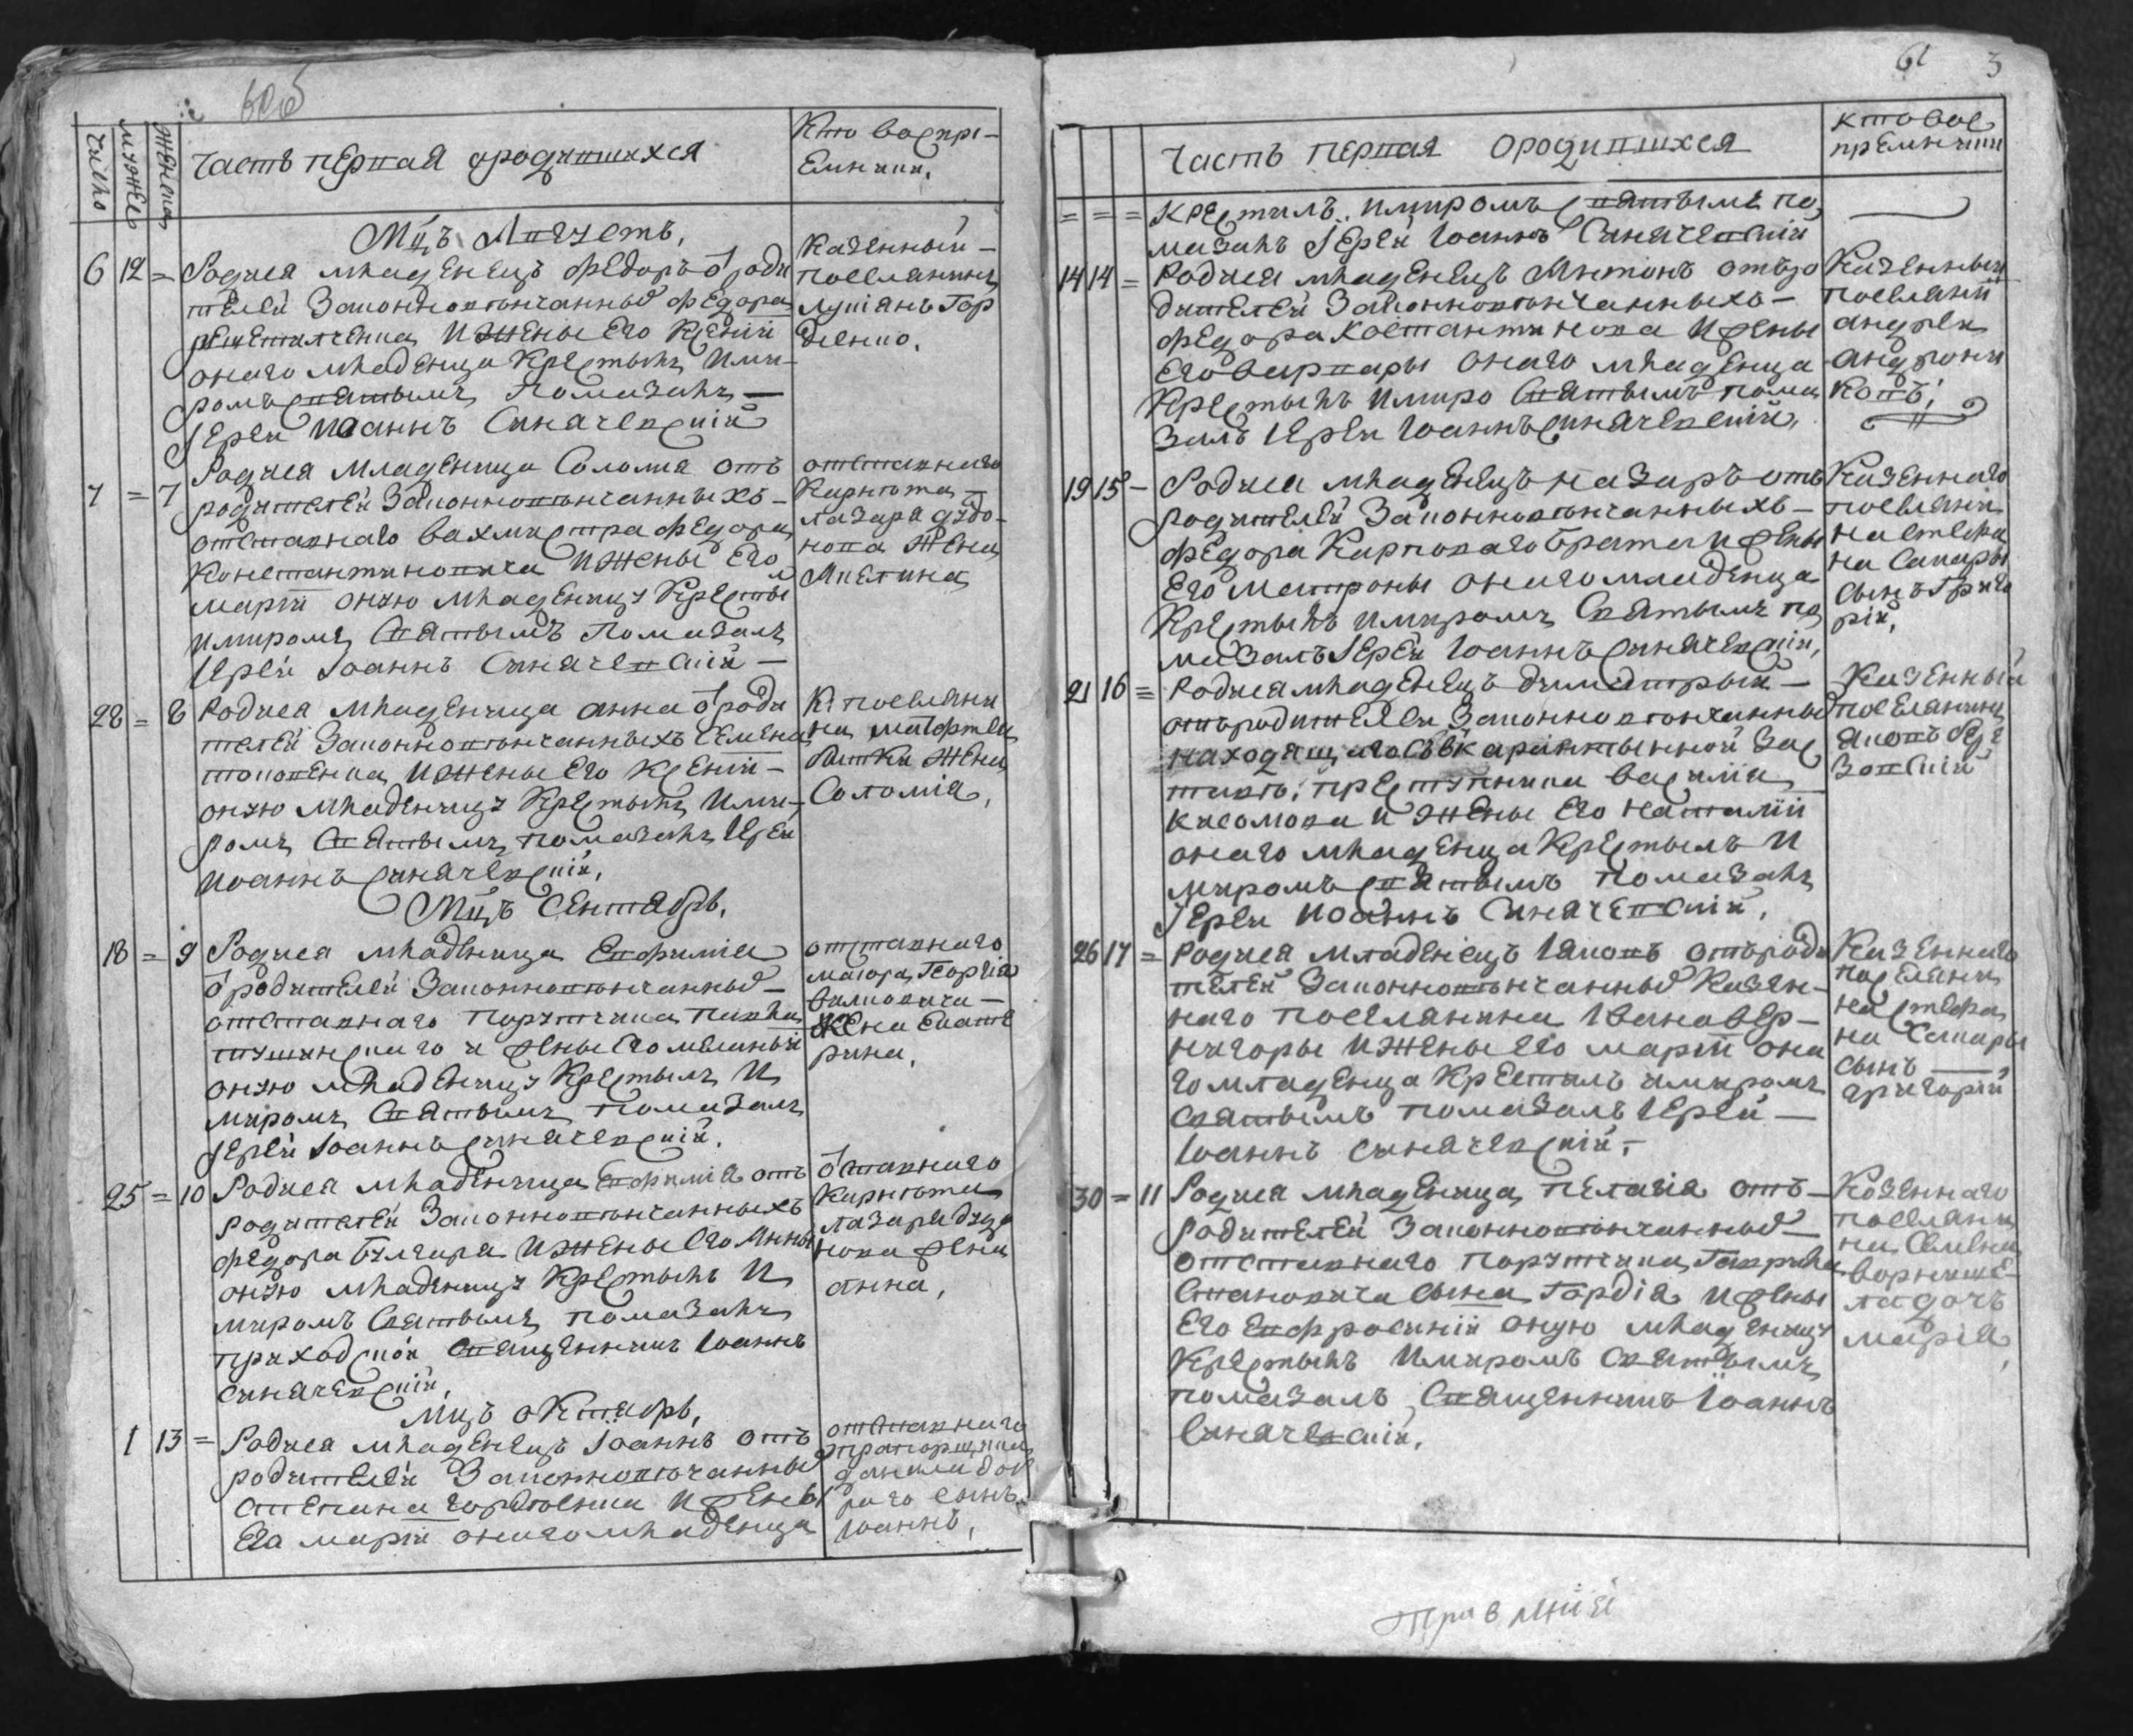 числа
мужеск
женска
Часть первая о родившихся
Кто воспрі-
емники.
Мцъ Августъ,
6 12 = Родися младенецъ Федоръ ѿ роди
телей законновѣнчанных Федора
и жены его Ксеніи
онаго младенца крестилъ и ми-
ромъ святымъ помазалъ —
Іерей Иоаннъ Синячевскій
Казенный —
поселянинъ
Лукіанъ Гор
деенко.
7 = 7 Родися младеница Соломия отъ
родителей законновѣнчанныхъ —
отставнаго вахмистра Федора
Константиновича и жены его
Маріи оную младеницу крести л
и миромъ святымъ помазалъ
Іерей Іоаннъ Синячевскій —
отставнаго
Карнета —
Лазаря Дудо-
нова жена
Акелина
28 = 8 Родися младеница Анна ѿ роди
телей законновѣнчанныхъ Семена
и жены его Ксеніи —
оную младеницу крестилъ и ми-
ромъ святымъ помазалъ Іерей
Иоаннъ Синячевскій,
К: поселяни
на Матфея
жена
Соломія,
Мцъ Сентябрь,
18 = 9 Родися младеница Евфимія
ѿ родителей законновѣнчанных —
отставнаго порутчика Павла
и жены его Меланьи
оную младеницу крестилъ и
миромъ святымъ помазалъ
Іерей Іоаннъ Синячевскій.
отставнаго
маіора Георгія
жена Екате
рина,
25 = 10 Родися младеница Евфимія отъ
родителей законновѣнчанныхъ
Федора Булгара и жены его Анны
оную младеницу крестилъ и
миромъ святымъ помазалъ
приходскій священникъ Іоаннъ
Синячевскій,
ѿставнаго
Карнета
Лазаря Дудо
нова жена
Анна,
Мцъ Октябрь,
1 13 = Родися младенецъ Іоаннъ отъ
родителей законновѣнчанных
Степана Гордѣенка и жены
его Маріи онаго младенца
отставнаго
прапорщика
Данила
сынъ
Іоаннъ,
61 3
Часть первая о родившихся
кто вос
преемники
= = = крестилъ и миромъ святымъ по
мазалъ Іерей Іоаннъ Синячевскій
14 14 = Родися младенецъ Антонъ отъ ро
дителей законновѣнчанныхъ —
Федора Костантинова и жены
его Варвары онаго младенца
крестилъ и миро святымъ пома
залъ Іерей Іоаннъ Синячевскій,
Казенный
поселянин
Андрей
Андрони
ковъ;
19 15 — Родися младенецъ Назаръ отъ
родителей законновѣнчанныхъ —
Федора Карповаго брата и жены
его Матроны онаго младенца
крестилъ и миромъ святымъ по
мазалъ Іерей Іоаннъ Синячевскій,
Казеннаго
поселяни
на Стефа
на Сапары
сынъ Григо
рій,
21 16 = Родися младенецъ Димитрый —
отъ родителей законновѣнчанных
находящагося в карантынной зас
тавѣ: преступника Василія
и жены его Наталіи
онаго младенца крестылъ и
миромъ святымъ помазалъ
Іерей Иоаннъ Синячевскій,
Казенный
поселянинъ
Яковъ Бере
зовскій
26 17 = Родися младенецъ Іаковъ отъ роди
телей законновѣнчанных казен-
наго поселянина Івана Вер-
нигоры и жены его Маріи она
го младенца крестилъ и миромъ
святымъ помазалъ Іерей —
Іоаннъ Синячевскій, —
Казеннаго
поселяни
на Стефа
на Сапары
сынъ —
Григорій
30 = 11 Родися младеница Пелагія отъ —
родителей законновѣнчанных —
отставнаго порутчика Гаврила
сына Гордія и жены
его Евфросиніи оную младеницу
крестилъ и миромъ святымъ
помазалъ Священникъ Іоаннъ
Синячевскій.
Казеннаго
поселяни
на Семена
ла дочь
Марія,